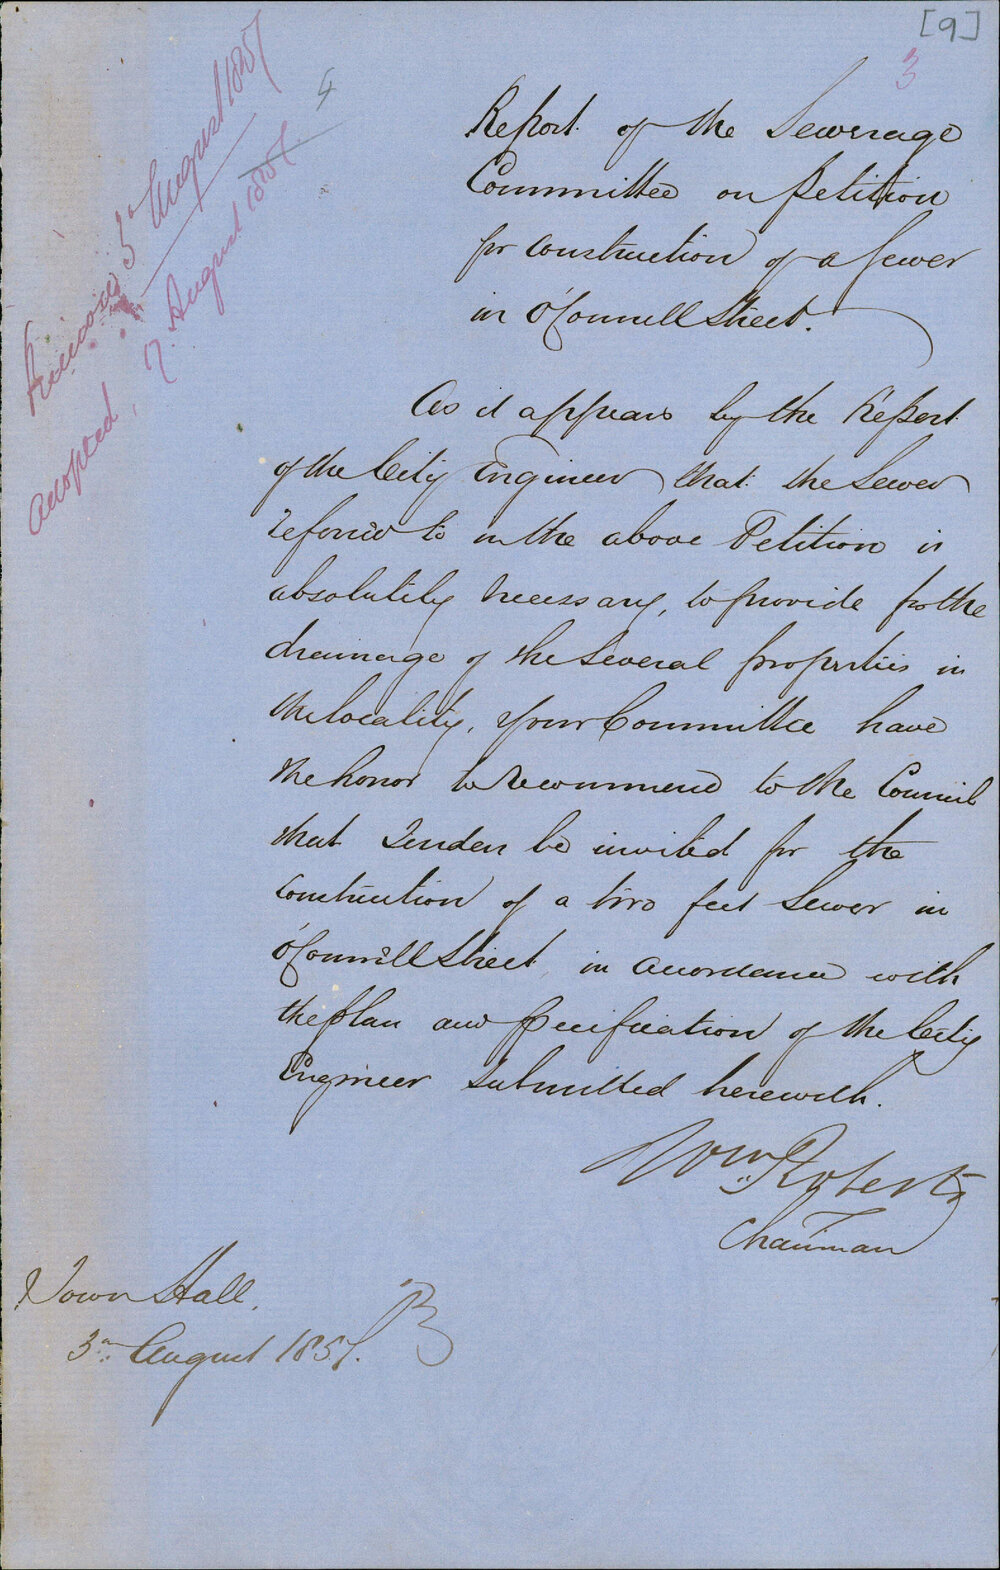 [9]
3
4
Report of the Sewerage
Committee on Petition
for construction of a Sewer
in O'Connell Street.
3d August 1857
adopted, 7. August 1857
As it appears by the Report
of the City Engineer that the Sewer
referred to in the above Petition is
absolutely necessary, to provide for the
drainage of the several properties in
the locality, Your Committee have
the honor to recommend to the Council
that Tenders be invited for the
construction of a two feet Sewer in
O'Connell Street in accordance with
the plan and specification of the City
Engineer submitted herewith.
Wm Roberts
Chairman
Town Hall.
3rd August 1857.